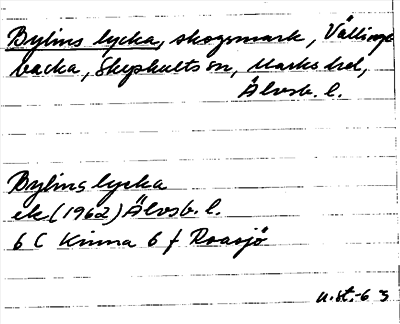 Bylins lycka, skogsmark, Vällings
backa, Skephults sn, Marks hd,
Älvsb. l.
Bylins lycka
ek (1962) Älvsb. l.
6 C Kinna 6 f Roasjö